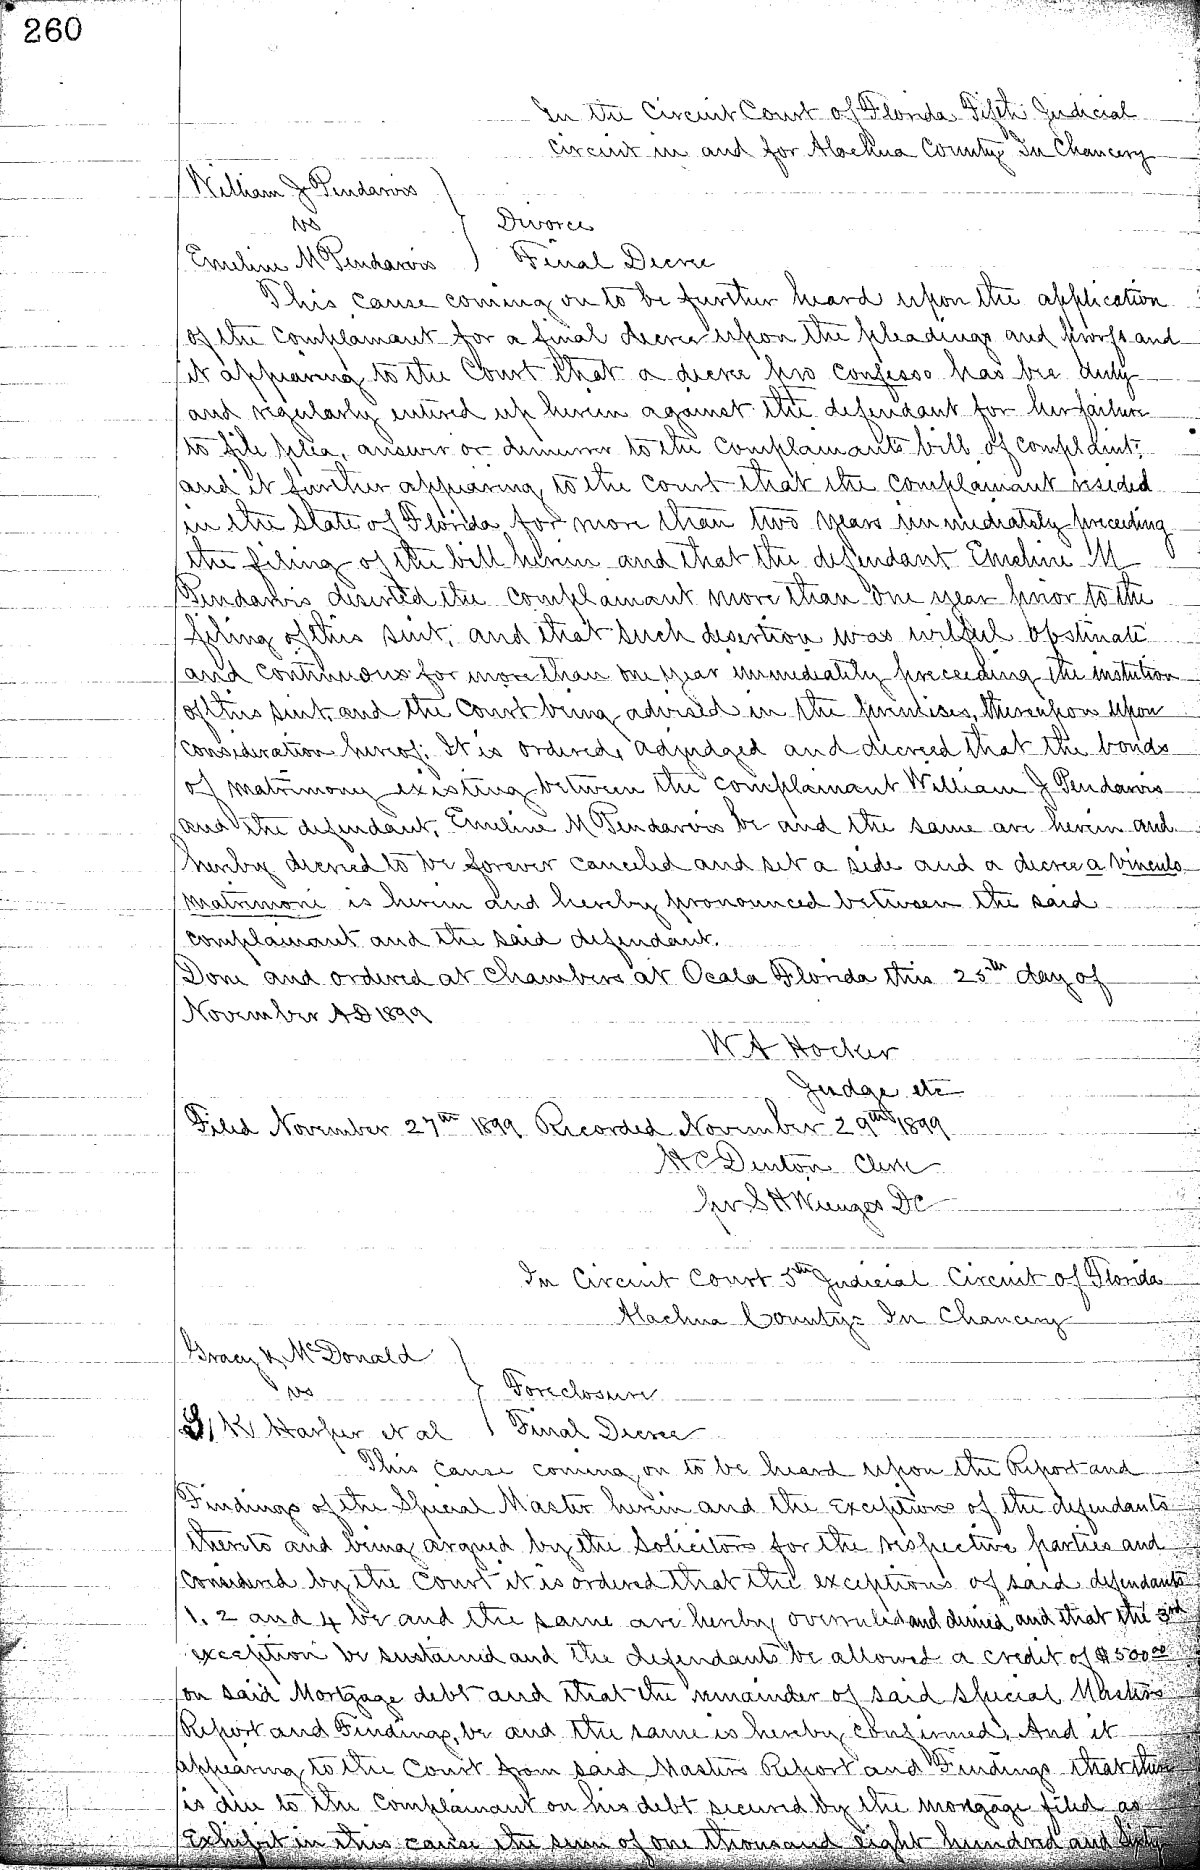 260
In the Circuit Court of Florida Fifth Judicial
Circuit in and for Alachua County In Chancery
William J Pendarvis
vs
Divorce
Emeline M Pendarvis
Final Decree
This cause coming on to be further heard upon the application
of the complainant for a final decree upon the pleadings and proofs and
it appearing to the Court that a decree pro confesso has bee duly
and regularly entered up herein against the defendant for her failure
to file plea, answer or demurrer to the complainants bill of complaint;
and it further appearing to the court that the complainant resided
in the State of Florida for more than two years immediately preceding
the filing of the bill herein and that the defendant Emeline M
Pendarvis deserted the complainant more than one year prior to the
filing of this suit, and that such desertion was wilful obstinate
and continuous for more than one year immediately preceeding the institution
of this suit, and the Court being advised in the premises, thereupon upon
consideration hereof. It is ordered, adjudged and decreed that the bonds
of matrimony existing between the complainant William J Pendarvis
and the defendant, Emeline M Pendarvis be and the same are herein and
hereby decreed to be forever canceled and set a side and a decree a vinculo
matrimoni is herein and hereby pronounced between the said
complainant and the said defendant.
Done and ordered at Chambers at Ocala Florida this 25th day of
November AD 1899
W A Hocker
Judge etc
Filed November 27th 1899 Recorded November 29th 1899
H C Denton Clerk
per S H Wienges DC
In Circuit Court 5th Judicial Circuit of Florida
Alachua County: In Chancery
McDonald
vs
Foreclosure
K Harper et al
Final Decree
This cause coming on to be heard upon the Report and
Findings of the Special Master herein and the exceptions of the defendants
thereto and being argued by the Solicitors for the respective parties and
considered by the Court it is ordered that the exceptions of said defendants
1, 2 and 4 be and the same are hereby overruled and denied and that the 3rd
exception be sustained and the defendants be allowed a credit of $500.00
on said Mortgage debt and that the remainder of said Special Masters
Report and Findings, be and the same is hereby confirmed, And it
appearing to the Court from said Masters Report and Findings that there
is due to the Complainant on his debt secured by the mortgage filed as
Exhibit in this cause the sum of one thousand eight hundred and sixty